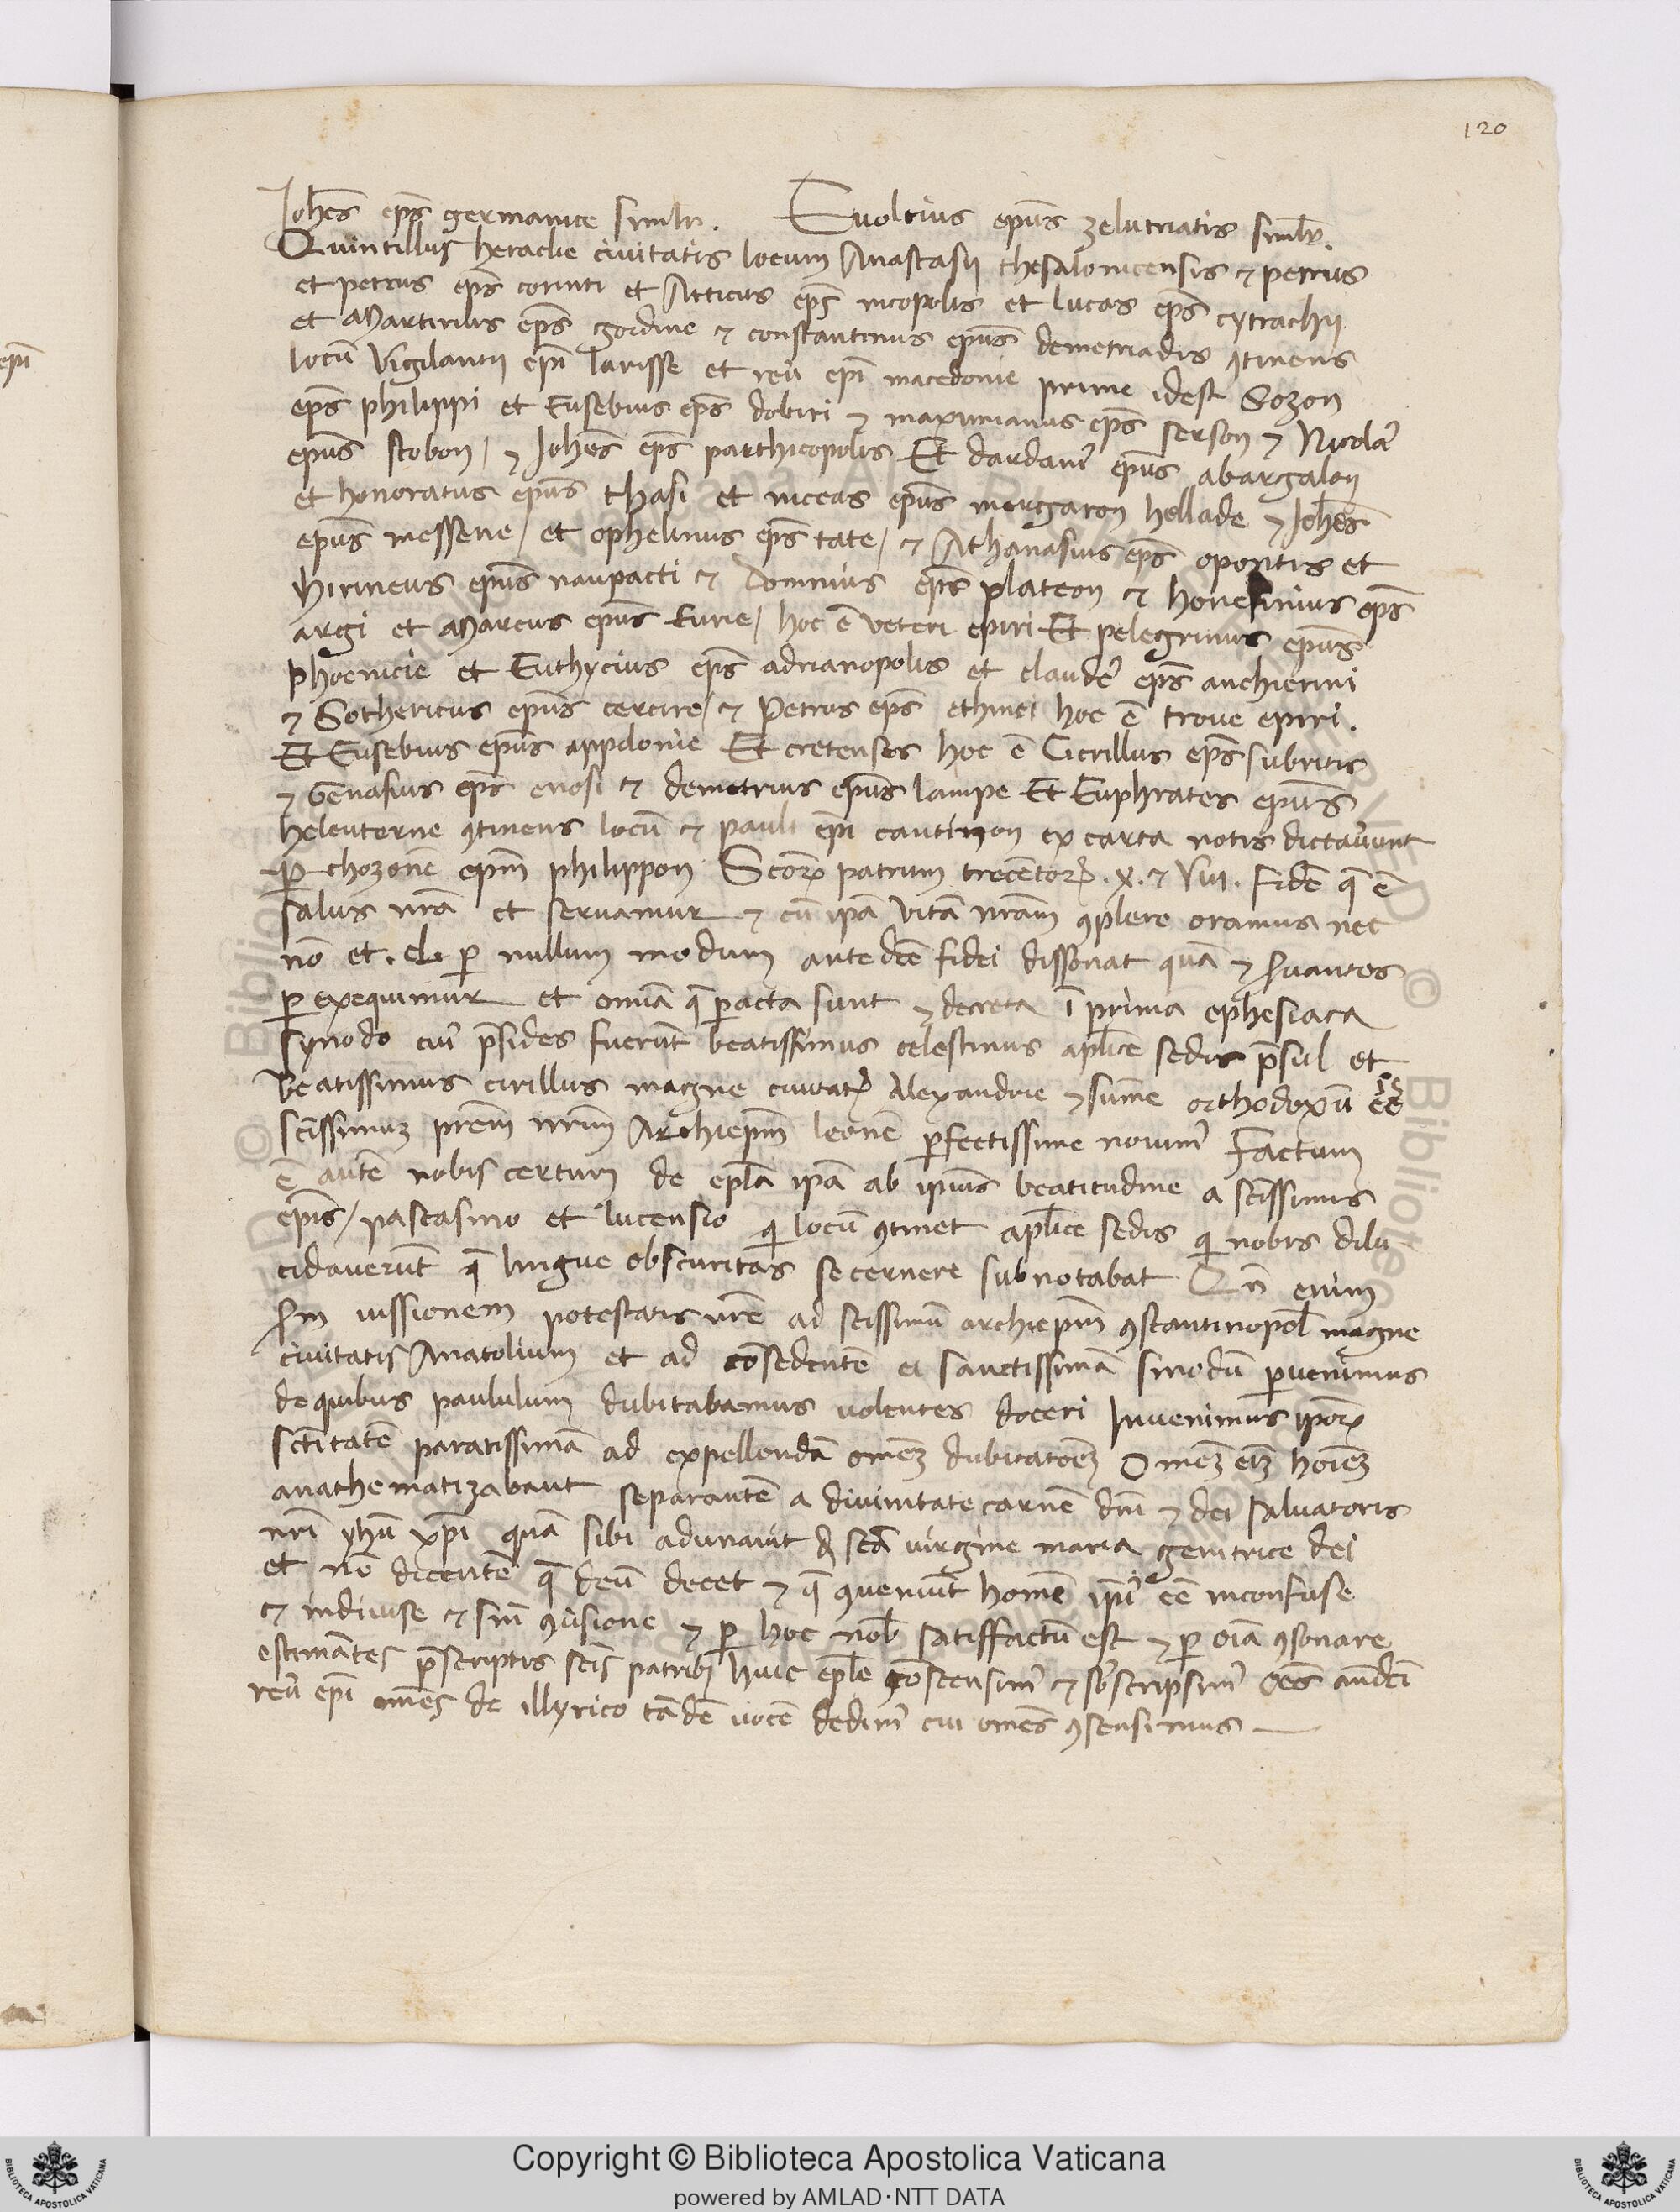 120
Johēs ep̄s germanice simlr. Euolcius ep̄us zelutriatis simlr.
Quintillus heraclie ciuitatis locum Anastasij thesalonicensis & petrus
et petrus ep̄s corinti et Atticus ep̄s nicopolis et lucas ep̄s cytrachij
et Martirius ep̄s gordine & constantinus ep̄us demetriadis ꝯtinens
locū Vigilantij ep̄i larisse et reū ep̄i macedonie prime idest Sozon
ep̄s philippi et Eusebius ep̄s dobiri & maximianus ep̄s serson & Nicola9
ep̄us stobon / & Johēs ep̄s parthicopolis Et dardani9 ep̄us abargalon
et honoratus ep̄us thasi et niceas ep̄us morgaron hellade & Johēs
ep̄us messene / et ophelinus ep̄s tate / & Athanasius ep̄s opontis et
hirineus ep̄us naupacti & Domnius ep̄s plateon & ep̄s
argi et Marcus ep̄us Eurie / hoc ē veteri epiri Et pelegrinus ep̄us
phoenicie et Euthycius ep̄s adrianopolis et claude9 ep̄s anchierini
& Sothericus ep̄us cercire / & Petrus ep̄s ethine hoc ē troue epiri.
Et Eusebius ep̄us appolonie Et cretenses hoc ē Cirillus ep̄s subritis
& Gennasius ep̄s enosi & demetrius ep̄us lampe Et Euphrates ep̄us
heleuterne ꝯtinens locū & pauli ep̄i cantinon ex carta notis dictauerunt
ꝑ chozonē ep̄m philippon Scorꝝ patrum trecētorꝝ .x. & viii. fidē q̄ ē
salus nr̄a et seruamur & cū ip̄a vitā nr̄am ꝯplere oramus nec
nō et .cl. ꝑ nullum modum antedc̄e fidei dissonat quā & seruantes
ꝑ exequimur et omia q̄ ꝑacta sunt & decreta ī prima ephesiaca
synodo cui9 p̄sides fuerūt beatissimus celestinus aplice sedis p̄sul et
Beatissimus cirillus magne ciuitatꝭ Alexandrie & sum̄e orthodoxū ēē
scissimuꝫ prēm nr̄um Archiep̄m leonē ꝑfectissime nouim9 Factum
ē autē nobis certum de epl̄a ip̄a ab ip̄ius beatitudine a scissimis
ep̄is / pascasino et lucensio qi locū ꝯtinet aplice sedis qi nobis dilu
cidauerūt q̄ lingue obscuritas secernere subnotabat Qn̄ enim
scd̄m iussionem potestatis vr̄e ad scissimū archiep̄m ꝯstantinopol̄ magne
ciuitatis Anatolium et ad cōsedentē ei sanctissimā sinodū ꝑuenimus
de quibus paululum dubitabamus uolentes doceri Inuenimus ip̄orꝝ
sctītatē paratissimā ad expellendā omēꝫ dubitatōeꝫ Omēꝫ eīꝫ hoīeꝫ
anathematizabant separantē a diuinitate carnē dn̄i & dei saluatoris
nr̄i yhū xp̄i quā sibi adunauit d̄ scā uirgine maria genitrice dei
et nō dicentē q̄ deū decet & q̄ ꝯueniūt homē ip̄i9 eē inconfuse
& indiuise & sin̄ ꝯuisione & ꝑ hoc nob̄ satisffactū est & ꝑ oīa ꝯsonare
estimātes p̄scriptis scīs patribꝫ huic epl̄e cōscensim9 & sb̄scripsim9 Oēs
reū ep̄i omēs de illyrico tādē uocē dedim9 cui omēs ꝯsensimus
ep̄i
Copyright © Biblioteca Apostolica Vaticana
powered by AMLAD·NTT DATA